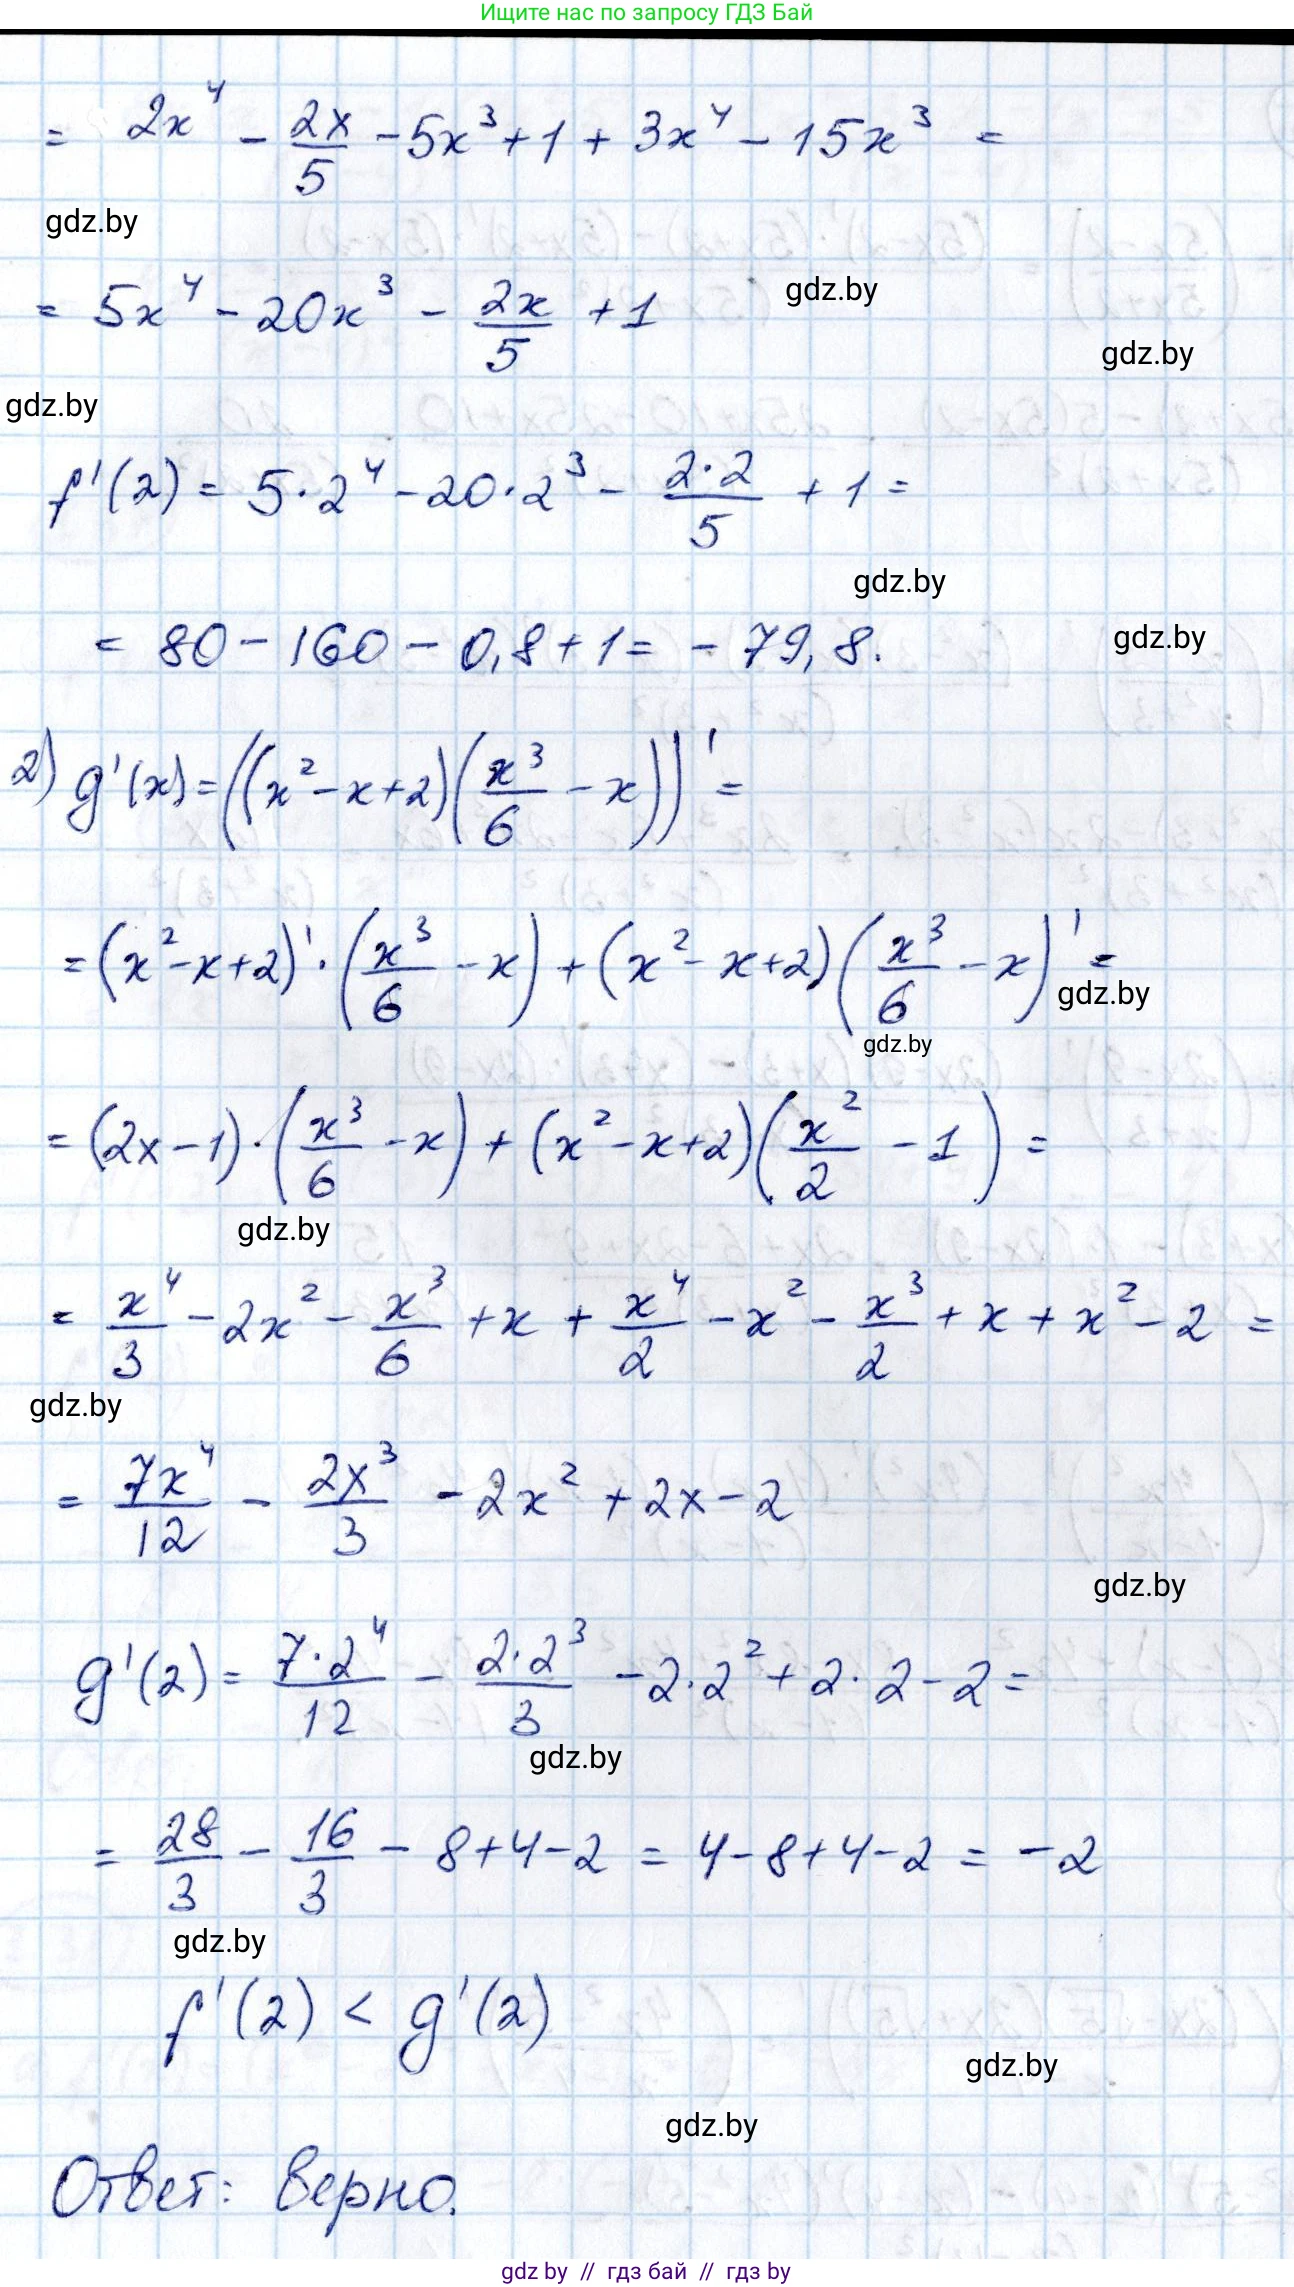 Ищите нас по запросу ГДЗ Бай
= 2x⁴ - 2x/5 - 5x³ + 1 + 3x⁴ - 15x³ =
gdz.by
= 5x⁴ - 20x³ - 2x/5 + 1
gdz.by
gdz.by
gdz.by
f'(2) = 5·2⁴ - 20·2³ - 2·2/5 + 1 =
gdz.by
= 80 - 160 - 0,8 + 1 = - 79,8.
gdz.by
2) g'(x) = ((x² - x + 2)(x³/6 - x))' =
= (x² - x + 2)'·(x³/6 - x) + (x² - x + 2)(x³/6 - x)' =
gdz.by
gdz.by
= (2x - 1)·(x³/6 - x) + (x² - x + 2)(x²/2 - 1) =
gdz.by
= x⁴/3 - 2x² - x³/6 + x + x⁴/2 - x² - x³/2 + x + x² - 2 =
gdz.by
= 7x⁴/12 - 2x³/3 - 2x² + 2x - 2
gdz.by
g'(2) = 7·2⁴/12 - 2·2³/3 - 2·2² + 2·2 - 2 =
gdz.by
= 28/3 - 16/3 - 8 + 4 - 2 = 4 - 8 + 4 - 2 = - 2
gdz.by
f'(2) < g'(2)
gdz.by
gdz.by
Ответ: верно.
gdz by // гдз бай // гдз by